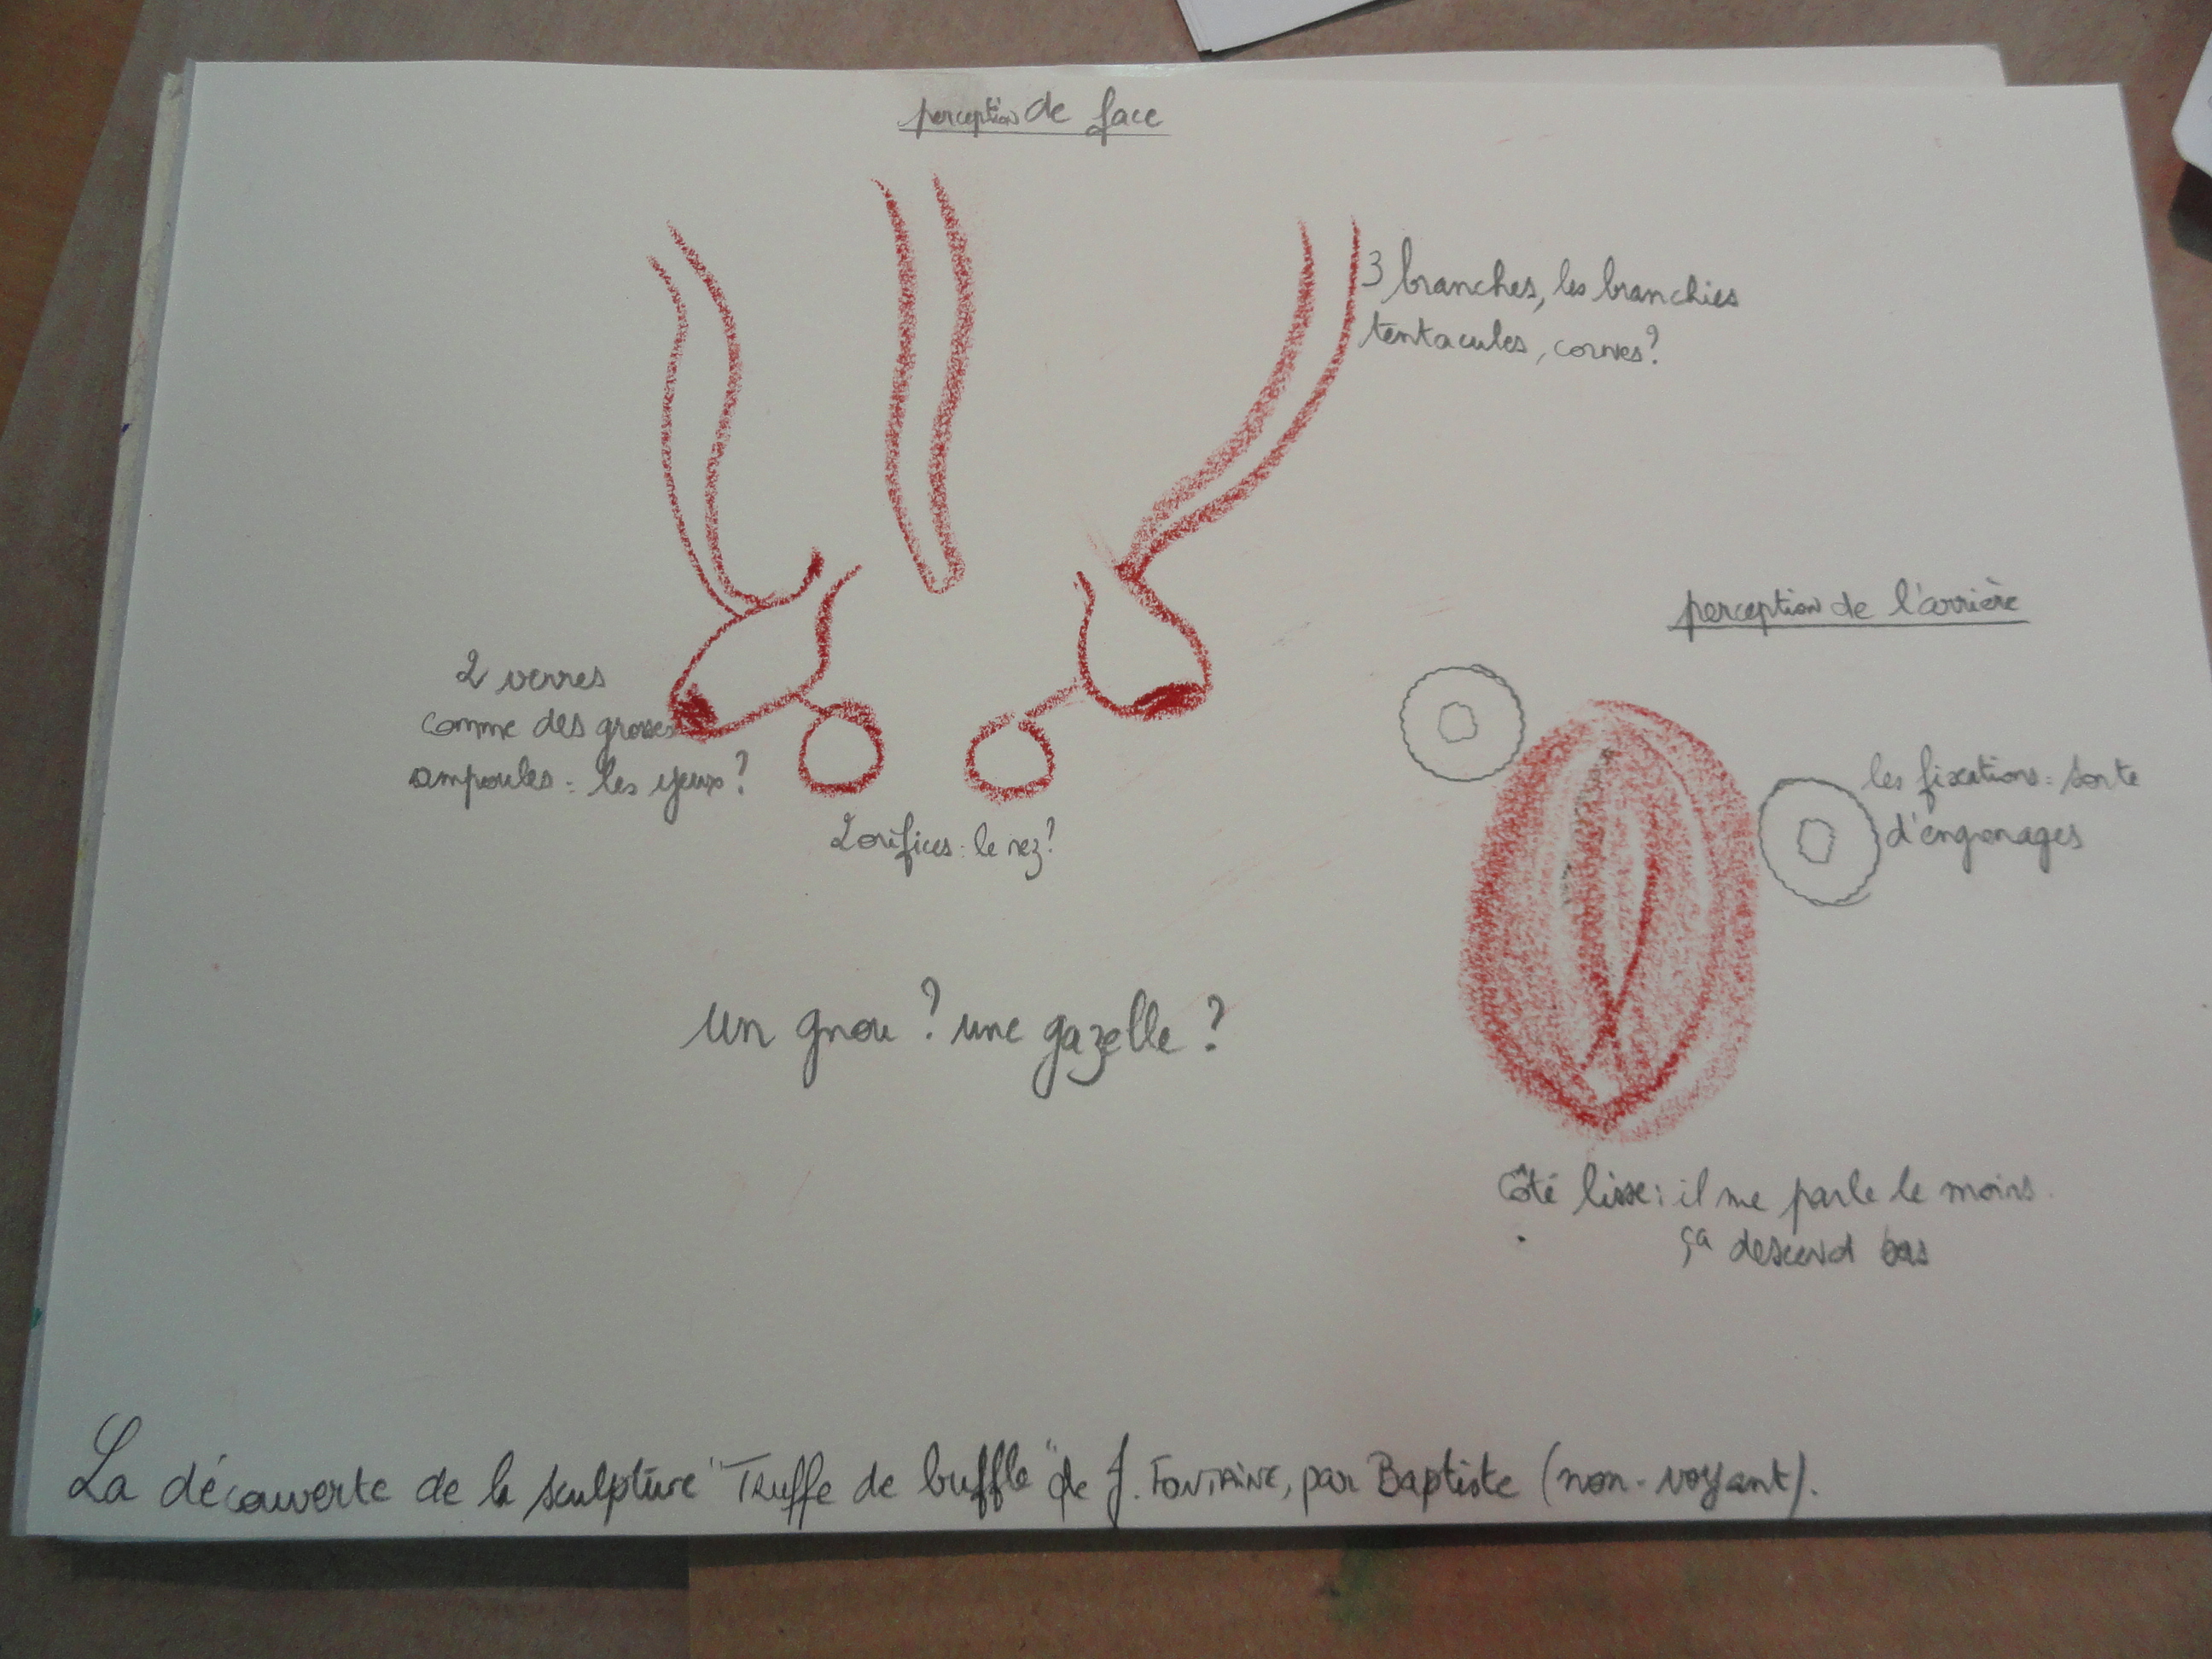 perception de face
3 branches, les branchies
tentacules, cornes?
2 verres
comme des grosses
ampoules = les yeux?
2 orifices : le nez?
perception de l'arrière
les fixations = sorte
d'engrenages
un gnou ? une gazelle ?
côté lisse : il me parle le moins.
ça descend bas
La découverte de la sculpture "Truffe de buffle" de J. FONTAINE, par Baptiste (non-voyant).